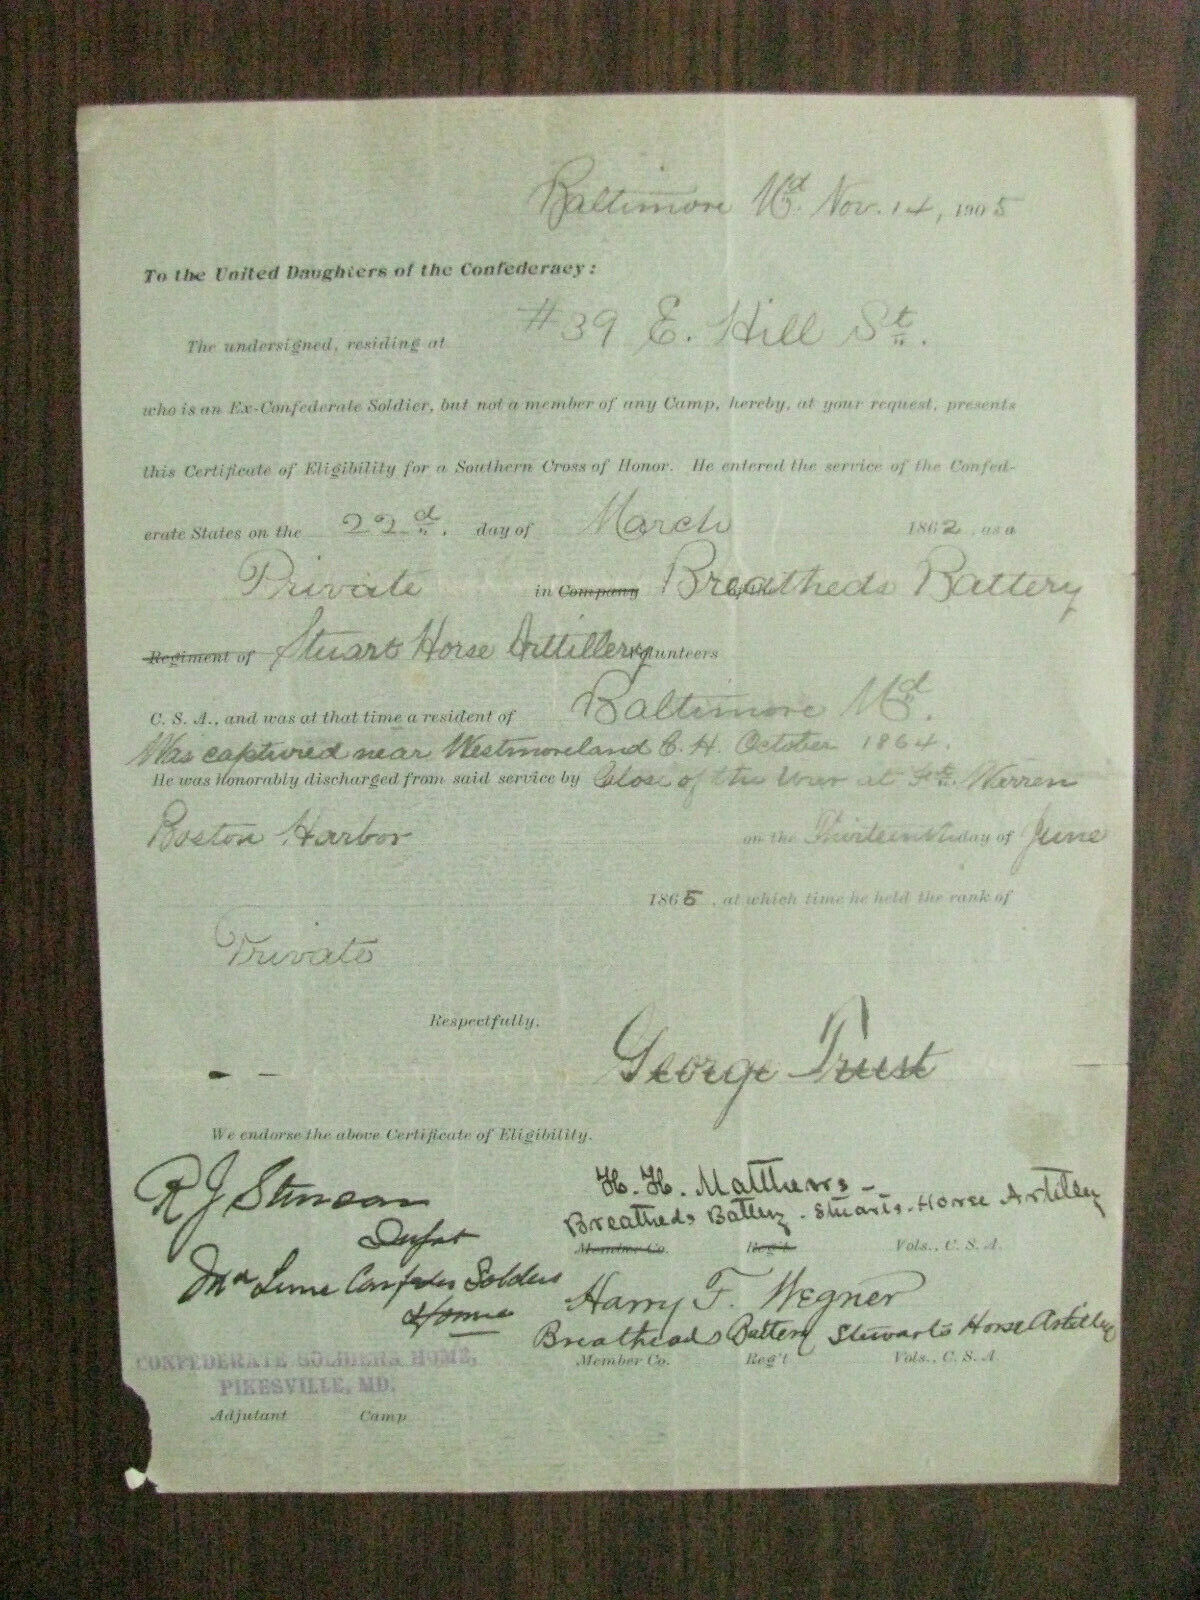 Baltimore Md. Nov. 14, 1905
To the United Daughters of the Confederacy:
The undersigned, residing at #39 E. Hill St.
who is an Ex-Confederate Soldier, but not a member of any Camp, hereby, at your request, presents
this Certificate of Eligibility for a Southern Cross of Honor. He entered the service of the Confed-
erate States on the 22d. day of March 1862, as a
Private in Company Breatheds Battery
Regiment of Stuart Horse Artillery Volunteers
C. S. A., and was at that time a resident of Baltimore Md.
Was captured near Westmoreland C. H. October 1864.
He was honorably discharged from said service by Close of the War at Ft. Warren
Boston Harbor on the Thirteenth day of June
1865, at which time he held the rank of
Private
Respectfully,
George Trust
We endorse the above Certificate of Eligibility.
R J Stinson
Supt
Md Line Confeder Solders
Home
CONFEDERATE SOLIDERS HOME,
PIKESVILLE, MD.
Adjutant Camp
H. H. Matthews -
Breatheds Battery. Stuarts. Horse Artillery
Member Co. Reg't Vols., C. S. A.
Harry F. Wegner
Breatheads Battery Stewarts Horse Artillery
Member Co. Reg't Vols., C. S. A.